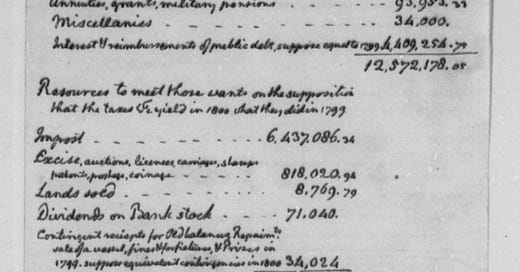 Annuities, grants, military pensions 93,953.33
Miscellanies - - - - 34,000.
Interest & reimbursements of public debt, suppose equal to 1799 4,409,254.78
12,572,178.05
Resources to meet those wants on the supposition
that the taxes &c. yield in 1800 what they did in 1799
Impost - - - - - - - 6,437,086.34
Excise, auctions, licenses, carriages, stamps
patents, postage, coinage - - - - 818,020.94
Lands sold - - - - - - 8,769.79
Dividends on Bank stock - - - - 71,040.
Contingent reciepts for Old balances, Repaimts.
sale of a vessel, fines & forfeitures, & Prizes in
1799. suppose equivalent contingencies in 1800 34,024